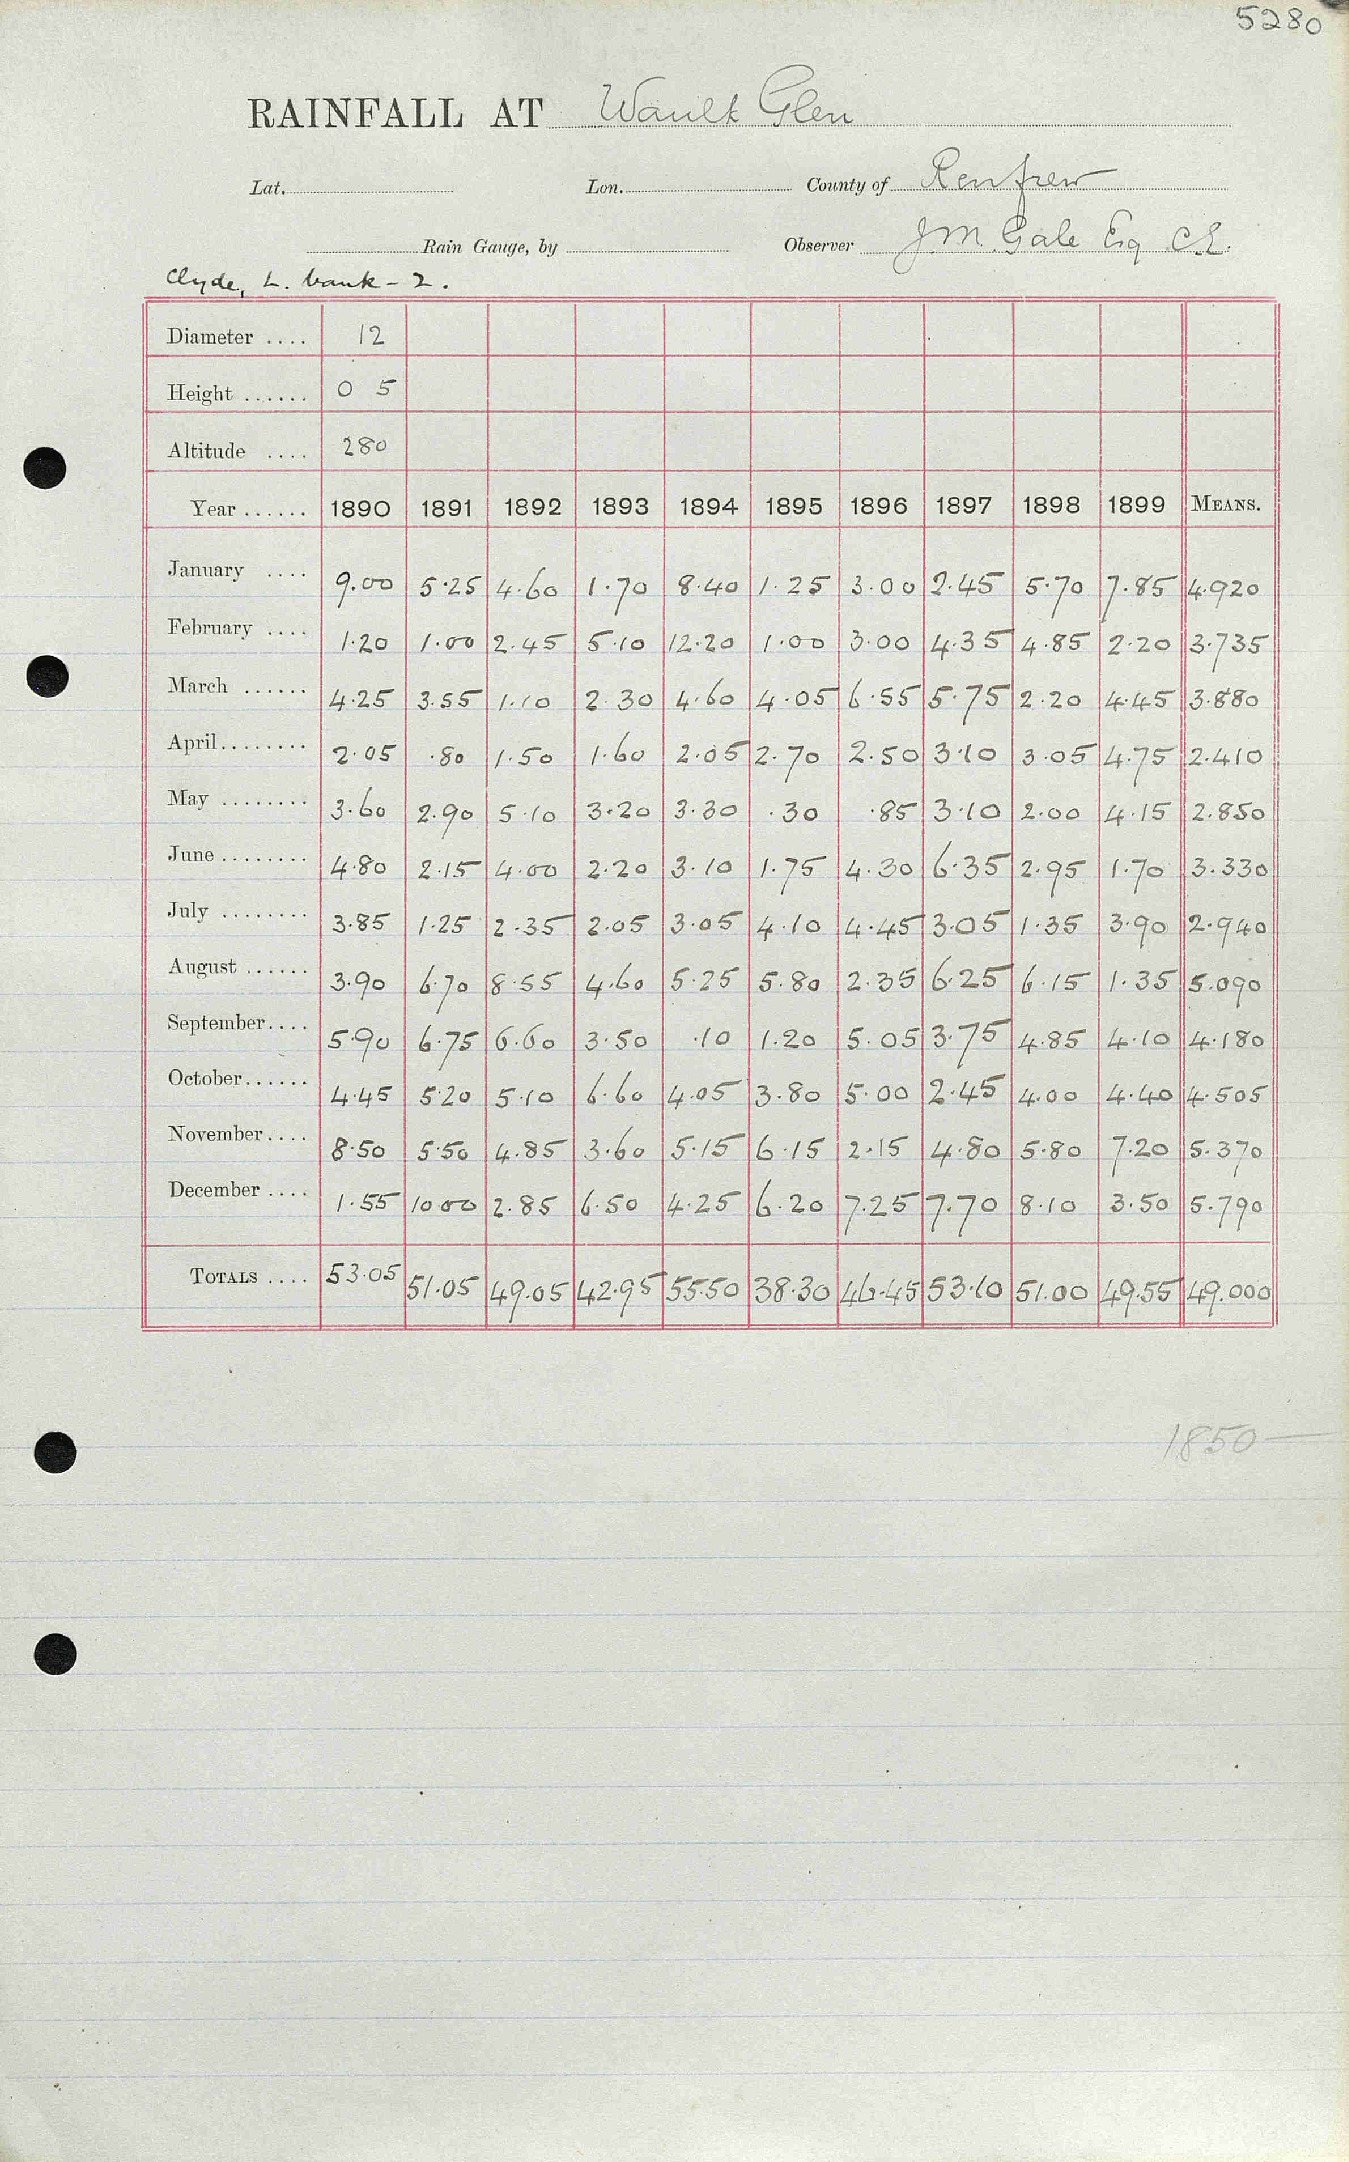 5280
RAINFALL AT Waulk Glen
Lat. Lon. County of Renfrew
Rain Gauge, by Observer J M. Gale Esq C.E.
Clyde, L. bank - 2.
Diameter .... 12
Height ...... 0 5
Altitude .... 280
Year ...... 1890 1891 1892 1893 1894 1895 1896 1897 1898 1899 MEANS.
January .... 9.00 5.25 4.60 1.70 8.40 1.25 3.00 2.45 5.70 7.85 4.920
February .... 1.20 1.00 2.45 5.10 12.20 1.00 3.00 4.35 4.85 2.20 3.735
March ...... 4.25 3.55 1.10 2.30 4.60 4.05 6.55 5.75 2.20 4.45 3.880
April ........ 2.05 .80 1.50 1.60 2.05 2.70 2.50 3.10 3.05 4.75 2.410
May ........ 3.60 2.90 5.10 3.20 3.30 .30 .85 3.10 2.00 4.15 2.850
June ........ 4.80 2.15 4.00 2.20 3.10 1.75 4.30 6.35 2.95 1.70 3.330
July ........ 3.85 1.25 2.35 2.05 3.05 4.10 4.45 3.05 1.35 3.90 2.940
August ...... 3.90 6.70 8.55 4.60 5.25 5.80 2.35 6.25 6.15 1.35 5.090
September .... 5.90 6.75 6.60 3.50 .10 1.20 5.05 3.75 4.85 4.10 4.180
October ...... 4.45 5.20 5.10 6.60 4.05 3.80 5.00 2.45 4.00 4.40 4.505
November .... 8.50 5.50 4.85 3.60 5.15 6.15 2.15 4.80 5.80 7.20 5.370
December .... 1.55 10.00 2.85 6.50 4.25 6.20 7.25 7.70 8.10 3.50 5.790
TOTALS .... 53.05 51.05 49.05 42.95 55.50 38.30 46.45 53.10 51.00 49.55 49.000
1850 —